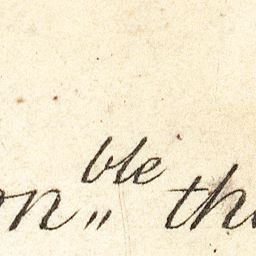 on„ble th